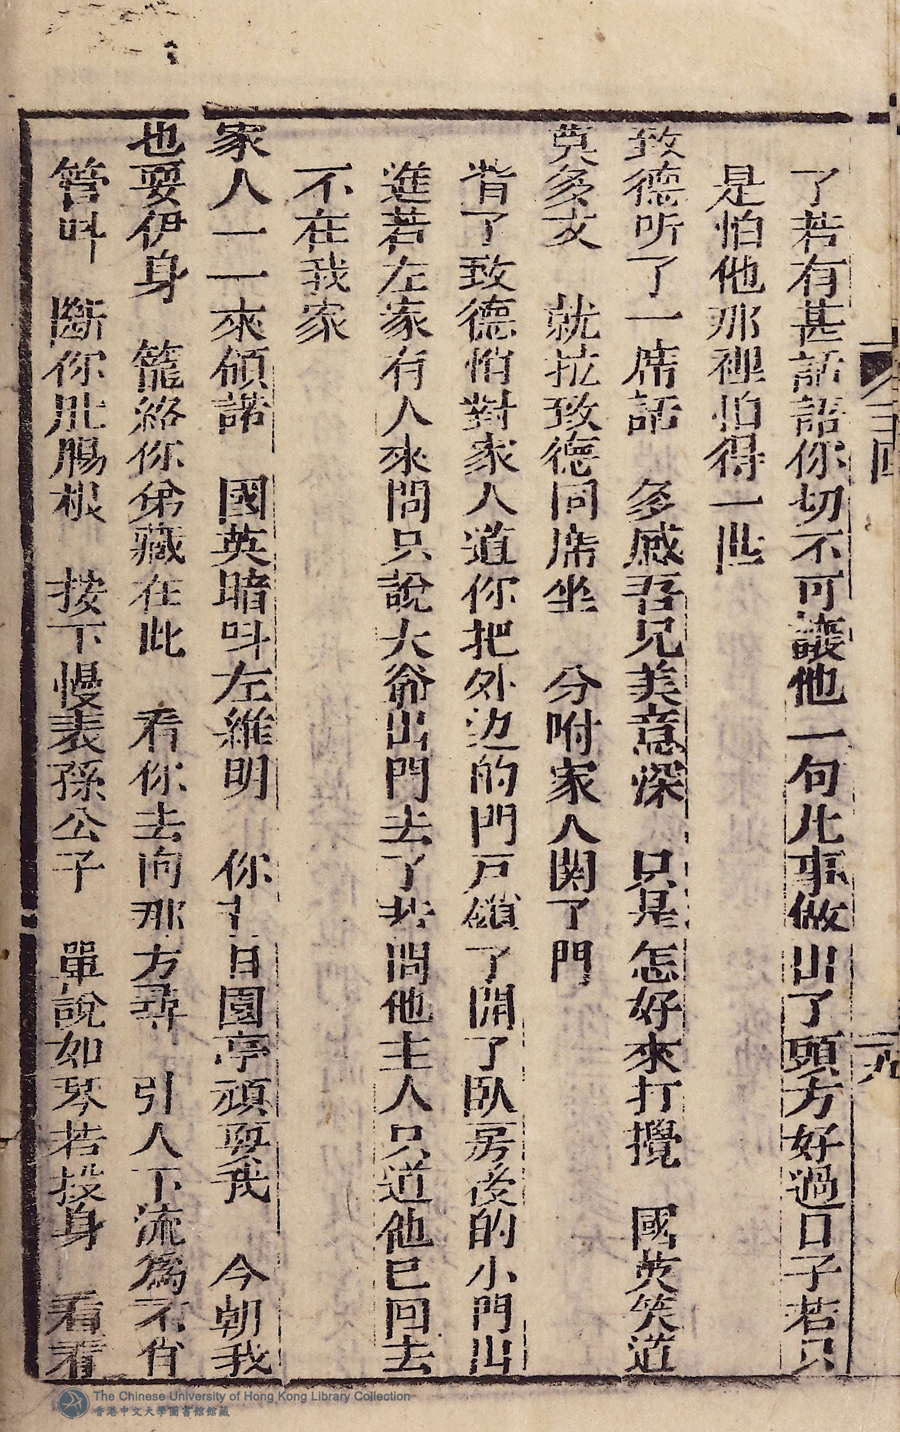 了若有甚話語你切不可讓他一句此事做出了頭方好過日子若只
是怕他那裡怕得一世
致德听了一席話 多感吾兄美意深 只是怎好來打攪 國英笑道
莫多文 就拉致德同席坐 分咐家人関了門
背了致德悄對家人道你把外边的門戸鎖了開了臥房後的小門出
進若左家有人來問只說大爺出門去了若問他主人只道他已回去
不在我家
家人一一來領諾 國英暗呌左維明 你 日園亭頑耍我 今朝我
也耍伊身 籠絡你弟藏在此 看你去向那方尋 引人下流為不肖
管呌 斷你肚腸根 按下慢表孫公子 單說如琴若投身 看看
十四
十九
The Chinese University of Hong Kong Library Collection
香港中文大學圖書館館藏